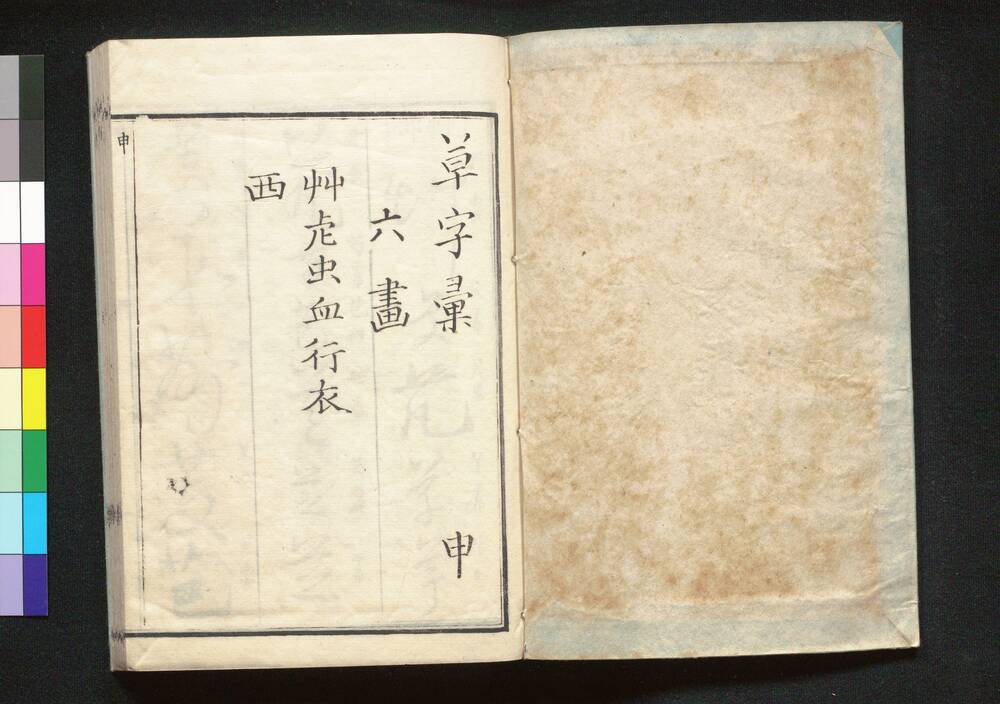 草字彙 申
六畫
艸虍虫血行衣
襾
申